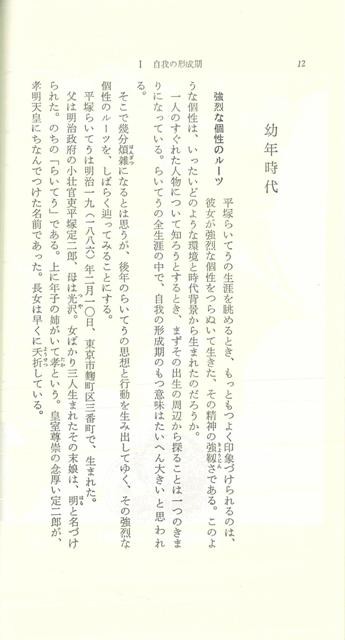 12
Ⅰ　自我の形成期
幼年時代
強烈な個性のルーツ
平塚らいてうの生涯を眺めるとき、もっともつよく印象づけられるのは、
彼女が強烈な個性をつらぬいて生きた、その精神の強靱さである。このよ
うな個性は、いったいどのような環境と時代背景から生まれたのだろうか。
一人のすぐれた人物について知ろうとするとき、まずその出生の周辺から探ることは一つのきま
りになっている。らいてうの全生涯の中で、自我の形成期のもつ意味はたいへん大きいと思われ
る。
そこで幾分煩雑になるとは思うが、後年のらいてうの思想と行動を生み出してゆく、その強烈な
個性のルーツを、しばらく辿ってみることにする。
平塚らいてうは明治一九（一八八六）年二月一〇日、東京市麴町区三番町で、生まれた。
父は明治政府の小壮官吏平塚定二郎、母は光沢。女ばかり三人生まれたその末娘は、明と名づけ
られた。のちの「らいてう」である。上に年子の姉がいて孝という。皇室尊崇の念厚い定二郎が、
孝明天皇にちなんでつけた名前であった。長女は早くに夭折している。